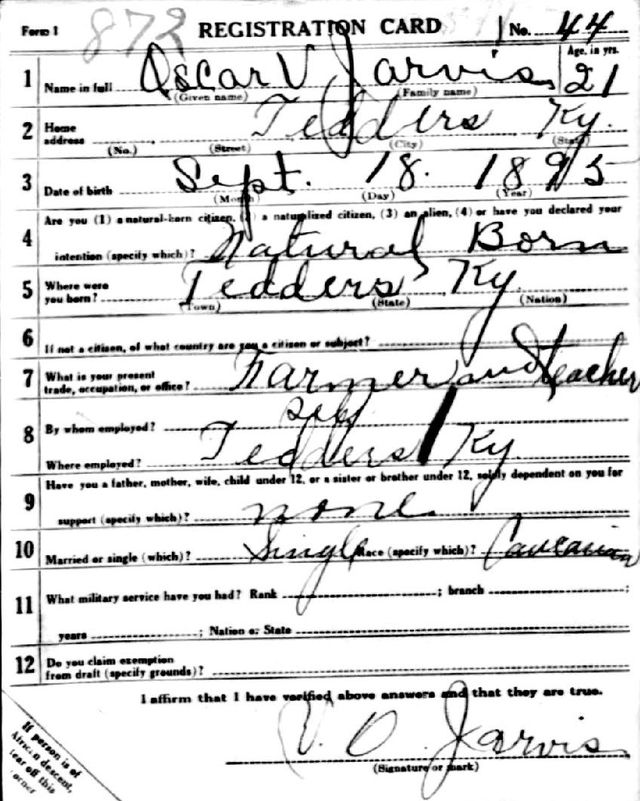 Form 1 872 REGISTRATION CARD No. 44
Age, in yrs.
1 Name in full Oscar V Jarvis 21
(Given name) (Family name)
2 Home address Tedders Ky.
(No.) (Street) (City) (State)
3 Date of birth Sept. 18. 1895
(Month) (Day) (Year)
4 Are you (1) a natural-born citizen, (2) a naturalized citizen, (3) an alien, (4) or have you declared your
intention (specify which)? Natural Born
5 Where were you born? Tedders Ky
(Town) (State) (Nation)
6 If not a citizen, of what country are you a citizen or subject?
7 What is your present trade, occupation, or office? Farmer and teacher
8 By whom employed? Self
Where employed? Tedders Ky
9 Have you a father, mother, wife, child under 12, or a sister or brother under 12, solely dependent on you for
support (specify which)? none
10 Married or single (which)? Single Race (specify which)? Caucasian
11 What military service have you had? Rank ; branch ;
years ; Nation or State
12 Do you claim exemption
from draft (specify grounds)?
I affirm that I have verified above answers and that they are true.
V. O. Jarvis
(Signature or mark)
If person is of
African descent,
tear off this
corner